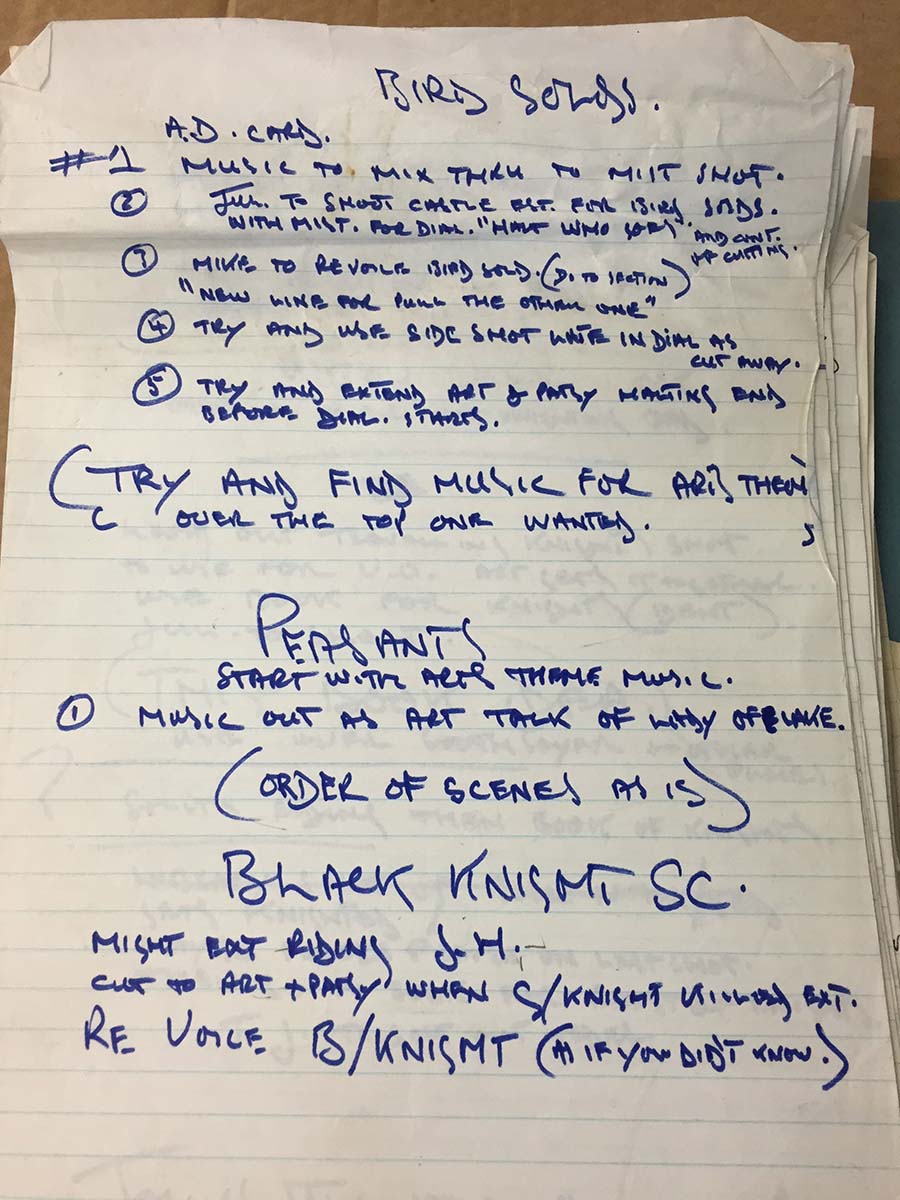 BIRD SOLDS.
A.D. CARD.
#1 MUSIC TO MIX THRU TO MIST SHOT.
② JUL. TO SHOOT CASTLE EST. FOR BIRD SOLDS.
WITH MIST. FOR DIAL. "HALT WHO GOES". AND CONT.
CUTTING.
③ MIKE TO REVOICE BIRD SOLD. (DO TO SECTION)
"NEW LINE FOR PULL THE OTHER ONE"
④ TRY AND USE SIDE SHOT LATE IN DIAL AS
CUT AWAY.
⑤ TRY AND EXTEND ART & PATSY HALTING END
BEFORE DIAL. STARTS.
(TRY AND FIND MUSIC FOR ARTS THEM
OVER THE TOP ONE WANTED.)
PEASANTS
START WITH ARTS THEME MUSIC.
① MUSIC OUT AS ART TALK OF LADY OF LAKE.
(ORDER OF SCENES AS IS)
BLACK KNIGHT SC.
MIGHT EXT RIDING
CUT TO ART + PATSY WHEN G/KNIGHT KILLED EXT.
RE VOICE B/KNIGHT (AS IF YOU DID'T KNOW.)